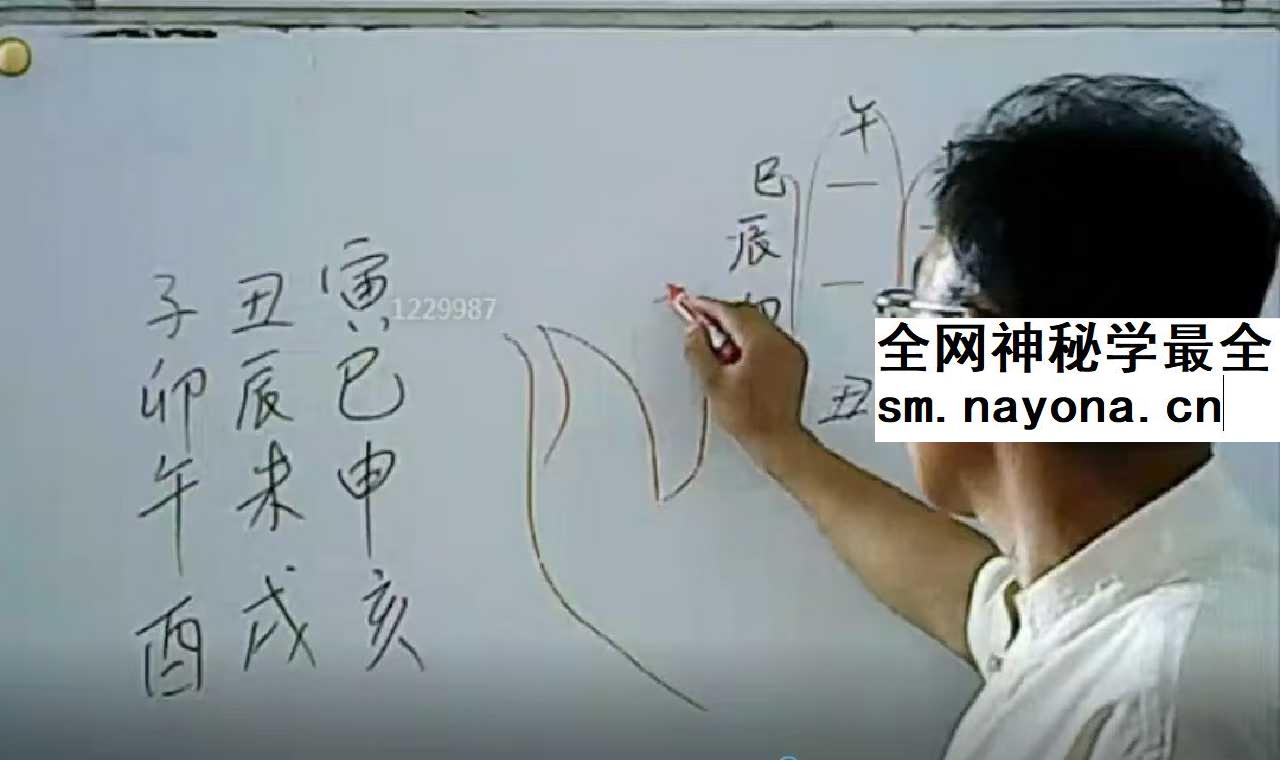 午
巳
辰
卯
丑
子 丑 寅
卯 辰 巳
午 未 申
酉 戌 亥
1229987
全网神秘学最全
sm.nayona.cn